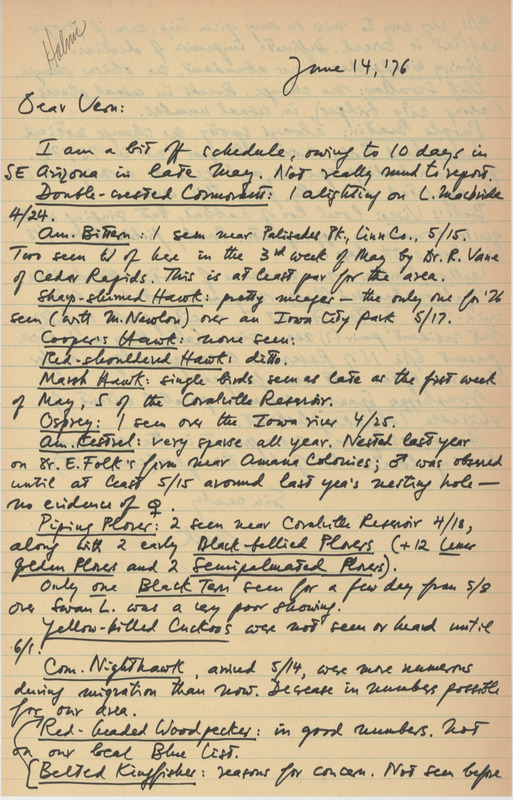 Halmi
June 14, '76
Dear Vern:
I am a bit off schedule, owing to 10 days in
SE Arizona in late May. Not really much to report.
Double-crested Cormorant: 1 alighting on L. Macbride
4/24.
Am. Bittern: 1 seen near Palisades Pk., Linn Co., 5/15.
Two seen W of here in the 3rd week of May by Dr. R. Vane
of Cedar Rapids. This is at least par for the area.
Sharp-shinned Hawk: pretty meager — the only one for '76
seen (with M. Newlon) over an Iowa City park 5/17.
Cooper's Hawk: none seen.
Red-shouldered Hawk: ditto.
Marsh Hawk: single birds seen as late as the first week
of May, S of the Coralville Reservoir.
Osprey: 1 seen over the Iowa river 4/25.
Am. Kestrel: very sparse all year. Nested last year
on Dr. E. Folk's farm near Amana Colonies; ♂ was observed
until at least 5/15 around last year's nesting hole —
no evidence of ♀.
Piping Plover: 2 seen near Coralville Reservoir 4/18,
along with 2 early Black-bellied Plovers (+12 Lesser
Golden Plovers and 2 Semipalmated Plovers).
Only one Black Tern seen for a few days from 5/8
over Swan L. was a very poor showing.
Yellow-billed Cuckoos were not seen or heard until
6/1.
Com. Nighthawk, arrived 5/14, were more numerous
during migration than now. Decrease in numbers possible
for our area.
Red-headed Woodpecker: in good numbers. Not
on our local Blue List.
Belted Kingfisher: reasons for concern. Not seen before